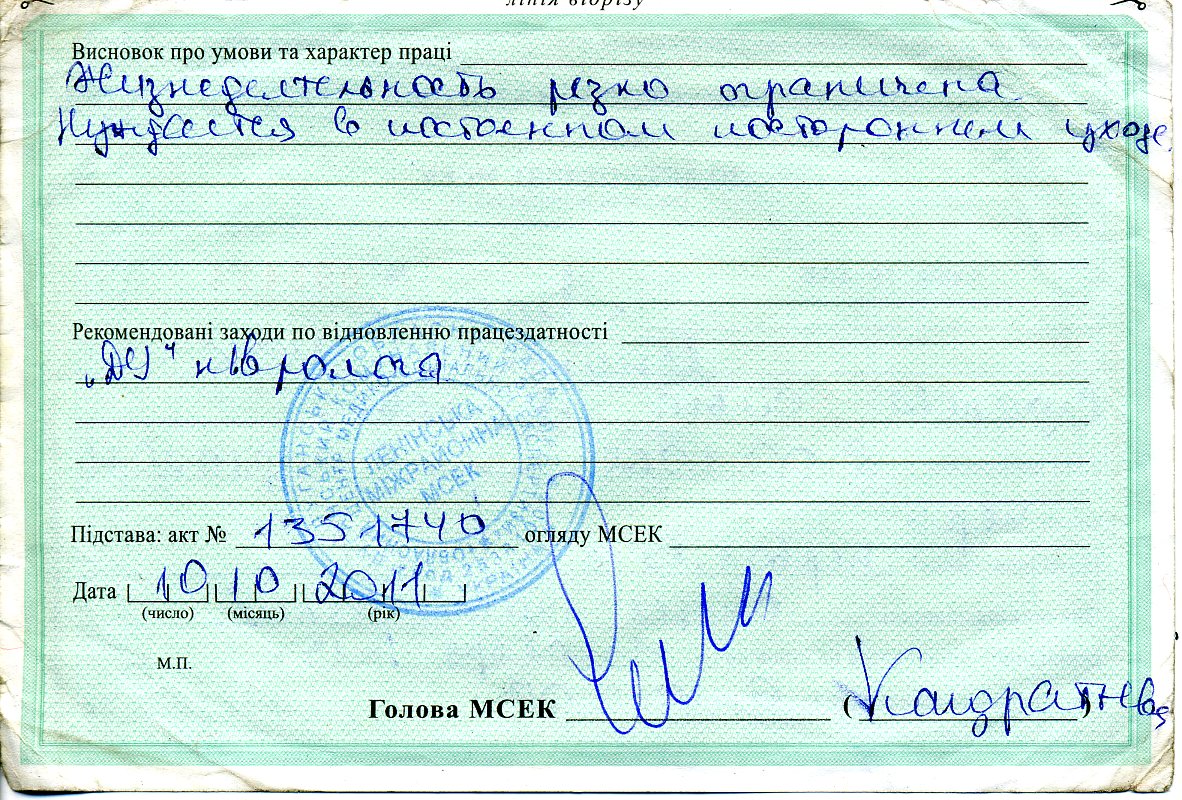 лінія відрізу
Висновок про умови та характер праці
Жизнедеятельность резко ограничена.
Нуждается в постоянном постороннем уходе.
Рекомендовані заходи по відновленню працездатності
„ДУ“ невролога
ЛЕНІНСЬКА
МІЖРАЙОННА
МСЕК
Підстава: акт № 1351740 огляду МСЕК
Дата 10 10 2011
(число) (місяць) (рік)
М.П.
Голова МСЕК (Кондратьева)